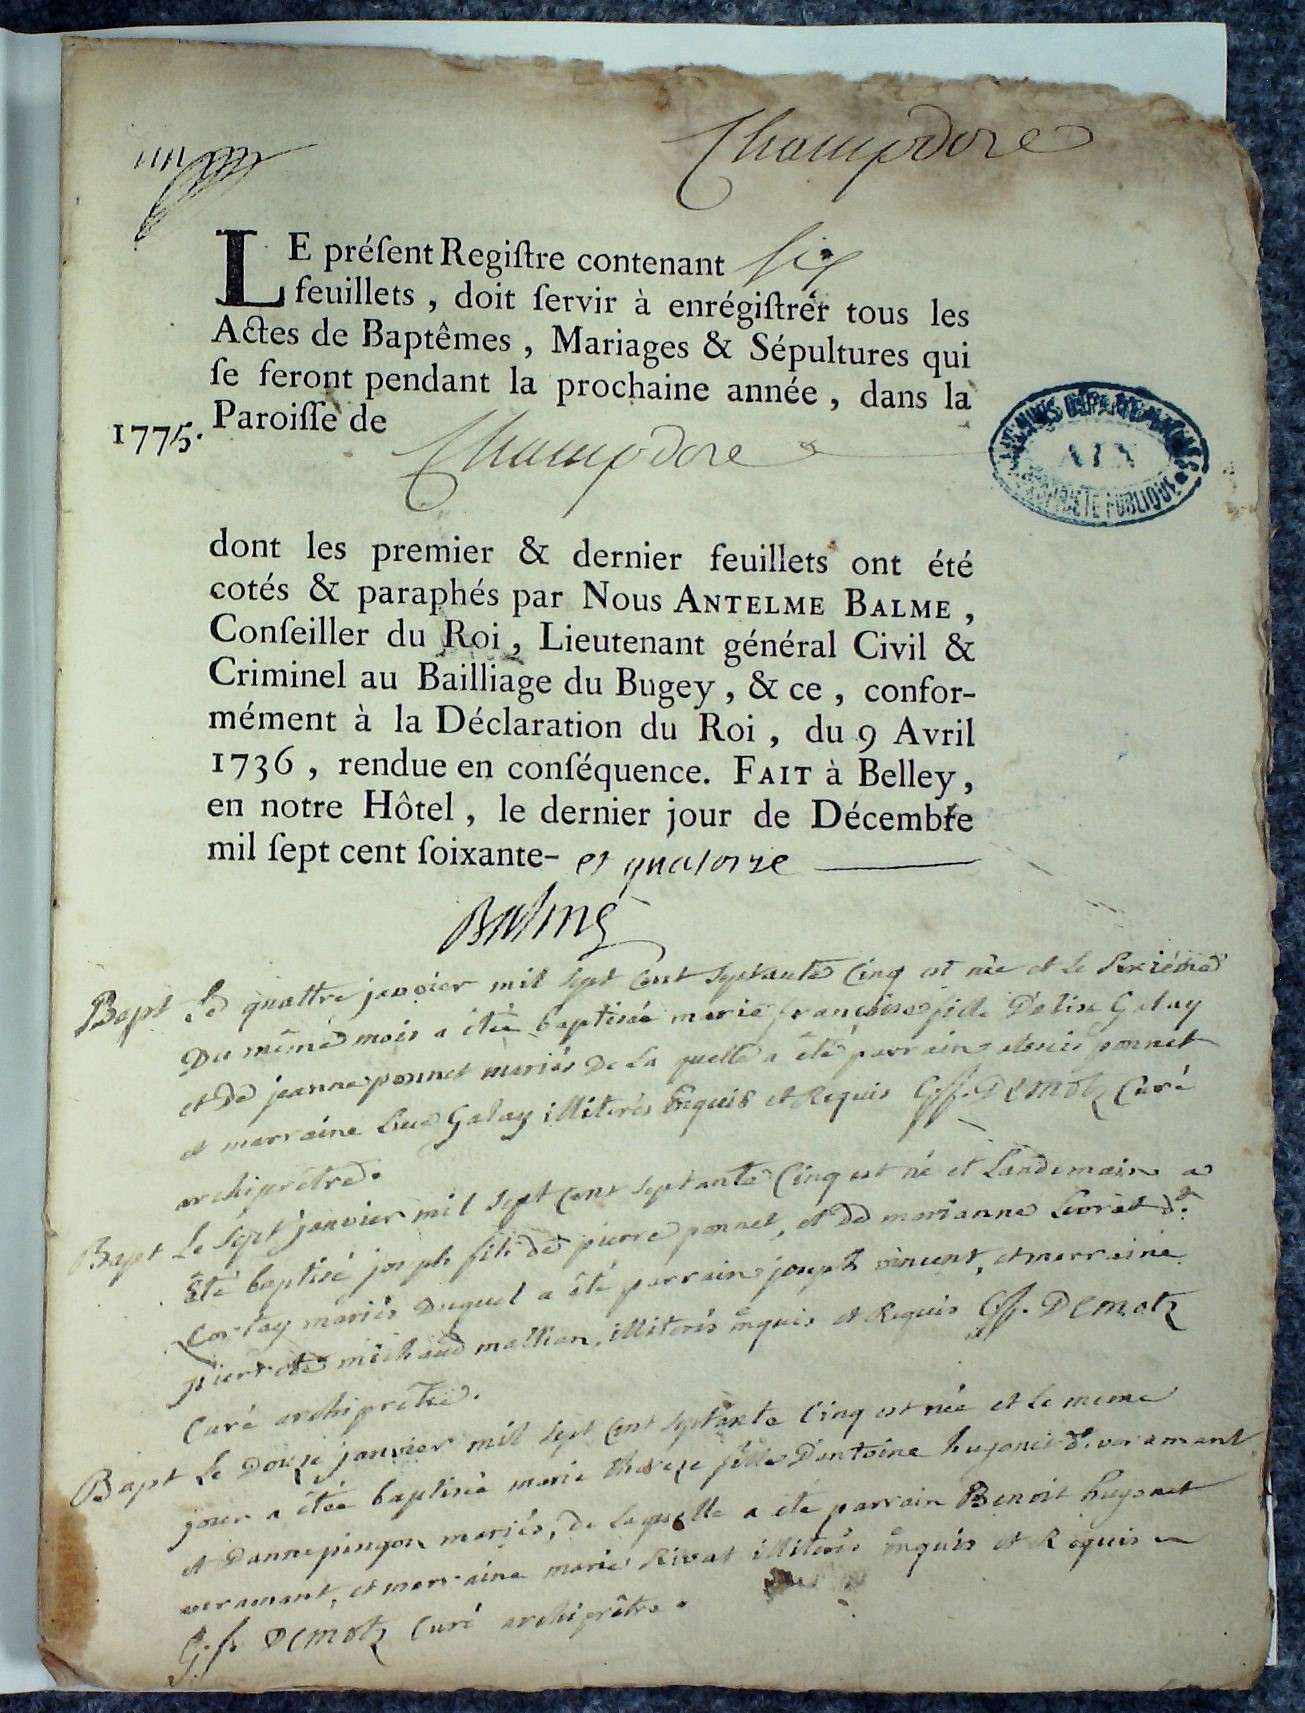 Champdore
LE préſent Regiſtre contenant six
feuillets, doit ſervir à enrégiſtrer tous les
Actes de Baptêmes, Mariages & Sépultures qui
ſe feront pendant la prochaine année, dans la
1775. Paroiſſe de Champdore
ARCHIVES DÉPARTEMENTALES
AIN
PROPRIÉTÉ PUBLIQUE
dont les premier & dernier feuillets ont été
cotés & paraphés par Nous ANTELME BALME,
Conſeiller du Roi, Lieutenant général Civil &
Criminel au Bailliage du Bugey, & ce, confor-
mément à la Déclaration du Roi, du 9 Avril
1736, rendue en conſéquence. FAIT à Belley,
en notre Hôtel, le dernier jour de Décembre
mil ſept cent ſoixante- et quatorze
Balme
Bapt Le quattre janvier mil sept cent septante Cinq est née et le
Du même mois a étée baptisée marie françoise fille Galay
et de jeanne ponnet mariés De la quelle a été parrain ponnet
et marraine Galay illiterés Enquis et Requis G.f. DEMOTZ Curé
archiprêtre.
Bapt Le sept janvier mil sept cent septante Cinq est né et Landemain a
été baptisé joseph fils de pierre ponnet, et de marianne
mariés Duquel a été parrain joseph vincent, et marraine
pierrette michaud mathon, illiterés enquis et Requis G.f. DEMotz
Curé archiprêtre.
Bapt Le Douze janvier mil sept cent septante Cinq est née et le meme
jour a étée baptisée marie therese fille D'antoine hugonet
et D'anne pingon mariés, de laquelle a été parrain Benoit hugonet
, et marraine marie Rivat illiterés enquis et Requis
G.f. DEMOTZ Curé archiprêtre.